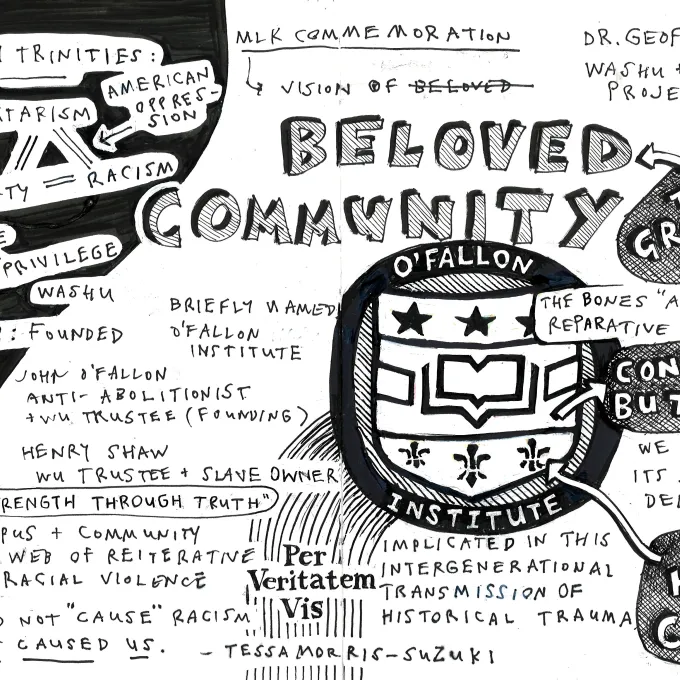 TRINITIES:
AMERICAN
OPPRES-
SION
RACISM
PRIVILEGE
WASHU
: FOUNDED
MLK COMMEMORATION
VISION OF BELOVED
BELOVED
COMMUNITY
DR. GEOF
WASHU +
PROJE
BRIEFLY NAMED
O'FALLON
INSTITUTE
O'FALLON
INSTITUTE
THE BONES "A
REPARATIVE
GR
CON
BUT
WE
ITS
DE
JOHN O'FALLON
ANTI-ABOLITIONIST
+ WU TRUSTEE (FOUNDING)
HENRY SHAW
WU TRUSTEE + SLAVE OWNER
RENGTH THROUGH TRUTH"
PUS + COMMUNITY
WEB OF REITERATIVE
RACIAL VIOLENCE
NOT "CAUSE" RACISM
CAUSED US.
- TESSA MORRIS-SUZUKI
Per
Veritatem
Vis
IMPLICATED IN THIS
INTERGENERATIONAL
TRANSMISSION OF
HISTORICAL TRAUMA